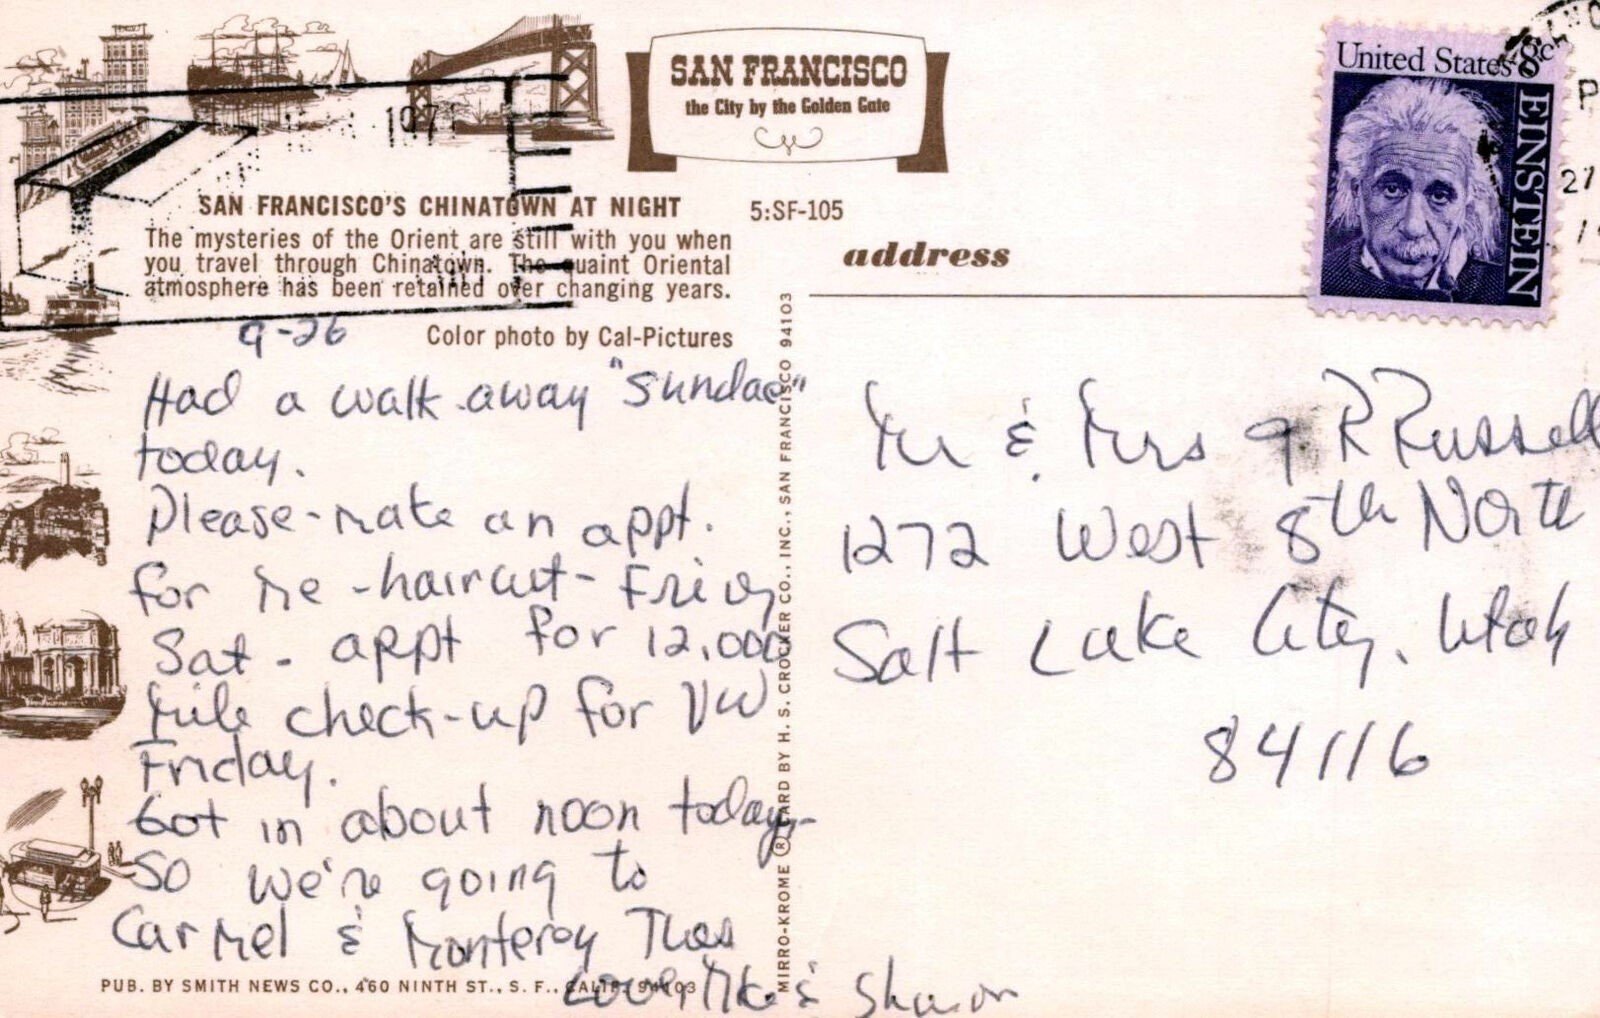 SAN FRANCISCO
the City by the Golden Gate
United States 8c
EINSTEIN
1971
27
SAN FRANCISCO'S CHINATOWN AT NIGHT
5:SF-105
The mysteries of the Orient are still with you when
you travel through Chinatown. The quaint Oriental
atmosphere has been retained over changing years.
address
9-26
Color photo by Cal-Pictures
Had a walk-away "sundae"
today.
Please make an appt.
for me - haircut - Fri or
Sat - appt for 12,000
mile check-up for VW
Friday.
Got in about noon today -
so we're going to
Carmel & Monterey Tues
Love, Mike & Sharon
Mr & Mrs G. R Russell
1272 West 8th North
Salt Lake City, Utah
84116
MIRRO-KROME ® CARD BY H. S. CROCKER CO., INC., SAN FRANCISCO 94103
PUB. BY SMITH NEWS CO., 460 NINTH ST., S. F., CALIF. 94103